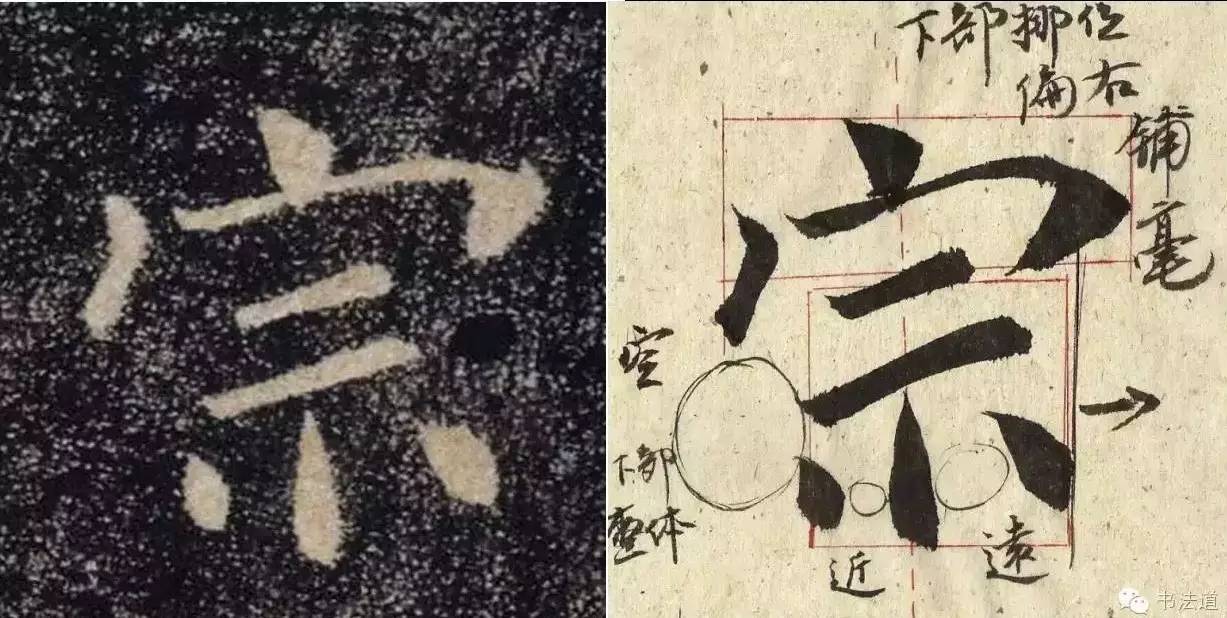 宗
下部挪位
偏右
铺毫
宗
空
下部
整体
近
遠
书法道